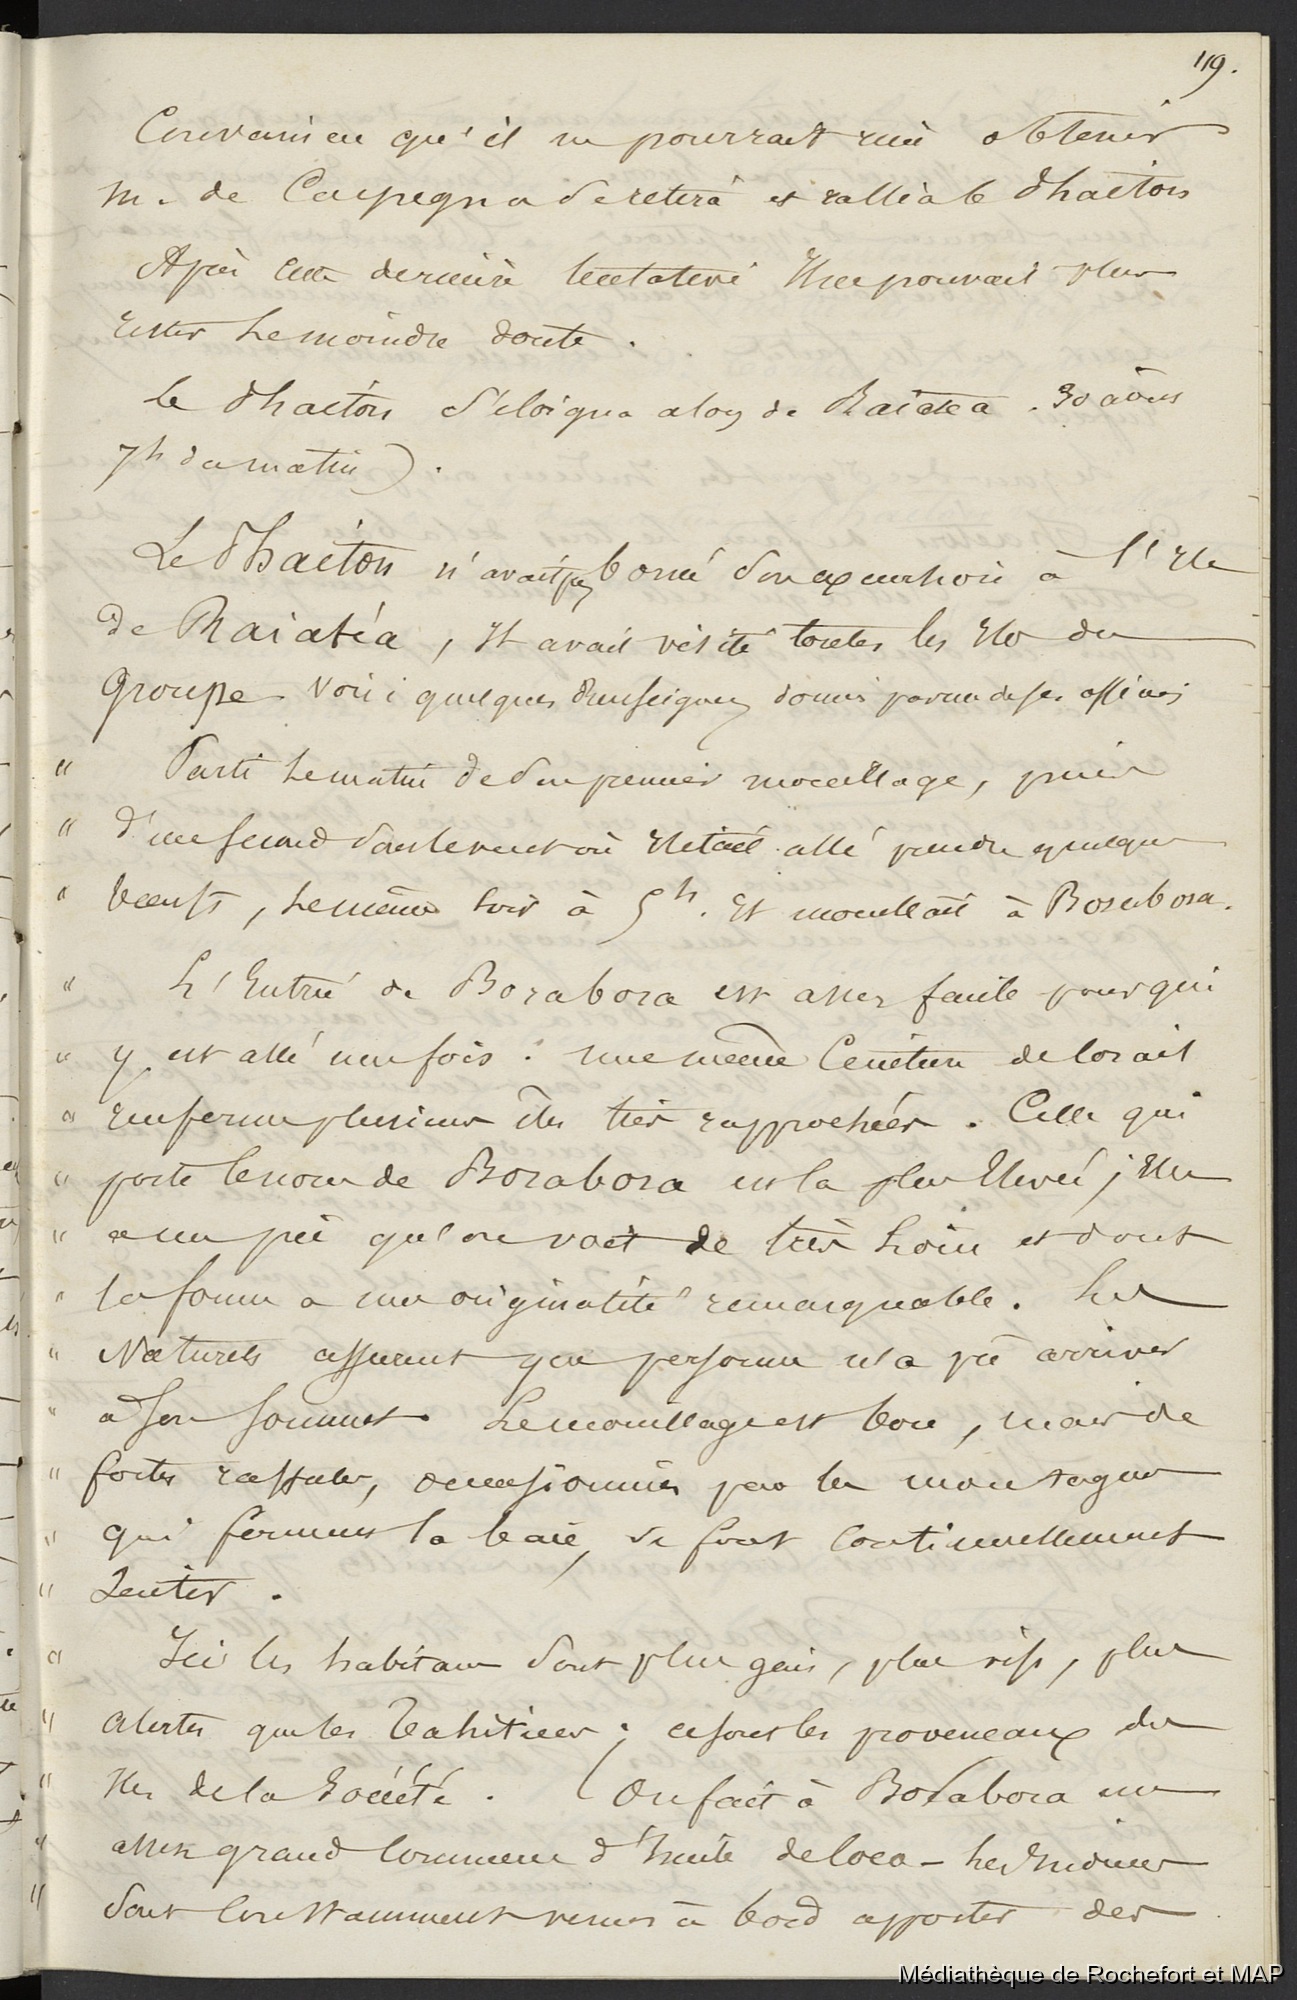 119.
Convaincu qu'il ne pourrait rien obtenir
M. de Carpegna se retira et rallia le Phaéton
Après cette dernière tentative Il ne pouvait plus
rester le moindre doute.
Le Phaéton s'éloigna alors de Raiatea. 30 août
7h du matin).
Le Phaéton n'avait pas borné son excursion à l'Ile
de Raiatéa, Il avait visité toutes les Iles du
Groupe. Voici quelques renseignem donnés par un de ses officiers
" Parti le matin de son premier mouillage, puis
" d'un second sous le vent où Il était allé prendre quelques
" boeufs, le même soir à 5h. Il mouillait à Borabora.
" L'Entrée de Borabora est assez facile pour qui
" y est allé une fois : une même Ceinture de Corail
" renferme plusieurs îles très rapprochées. Celle qui
" porte le nom de Borabora est la plus Elevée ; Elle
" a un pic qu'on voit de très loin et dont
" la forme a une originalité remarquable. Les
" Naturels assurent que personne n'a pû arriver
" à son sommet. Le mouillage est bon, mais de
" fortes raffales, occasionnées par les montagnes
" qui forment la baie, se font Continuellement
" Sentir.
" Ici les habitans sont plus gais, plus vifs, plus
" alertes que les Tahitiens ; ce sont les provencaux des
" Iles de la Société. On fait à Borabora un
" assez grand Commerce d'huile de Coco - les Indiens
" sont Constamment venus à bord apporter des
Médiathèque de Rochefort et MAP